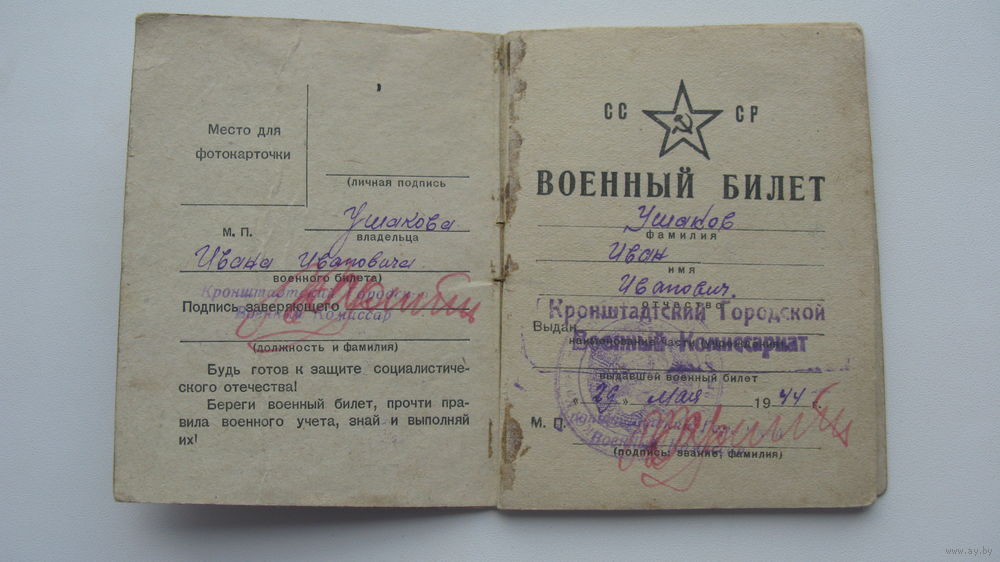 Место для
фотокарточки
(личная подпись
М. П.
Ушакова
владельца
Ивана Ивановича
военного билета)
Кронштадтский Городск
Подпись заверяющего
Военный Комиссар
(должность и фамилия)
Будь готов к защите социалистиче-
ского отечества!
Береги военный билет, прочти пра-
вила военного учета, знай и выполняй
их!
СС СР
ВОЕННЫЙ БИЛЕТ
Ушаков
фамилия
Иван
имя
Иванович.
отчество
Кронштадтский Городской
Выдан
Военный Комиссариат
выдавшей военный билет
"29" мая 1944 г.
М. П.
Военный
(подпись: звание, фамилия)
www.ay.by